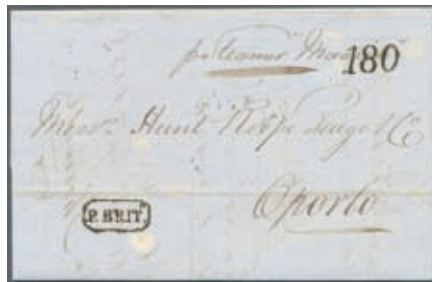 pr Steamer
180
Messrs. Hunt Roope Teage & Co
Oporto
P. BRIT.